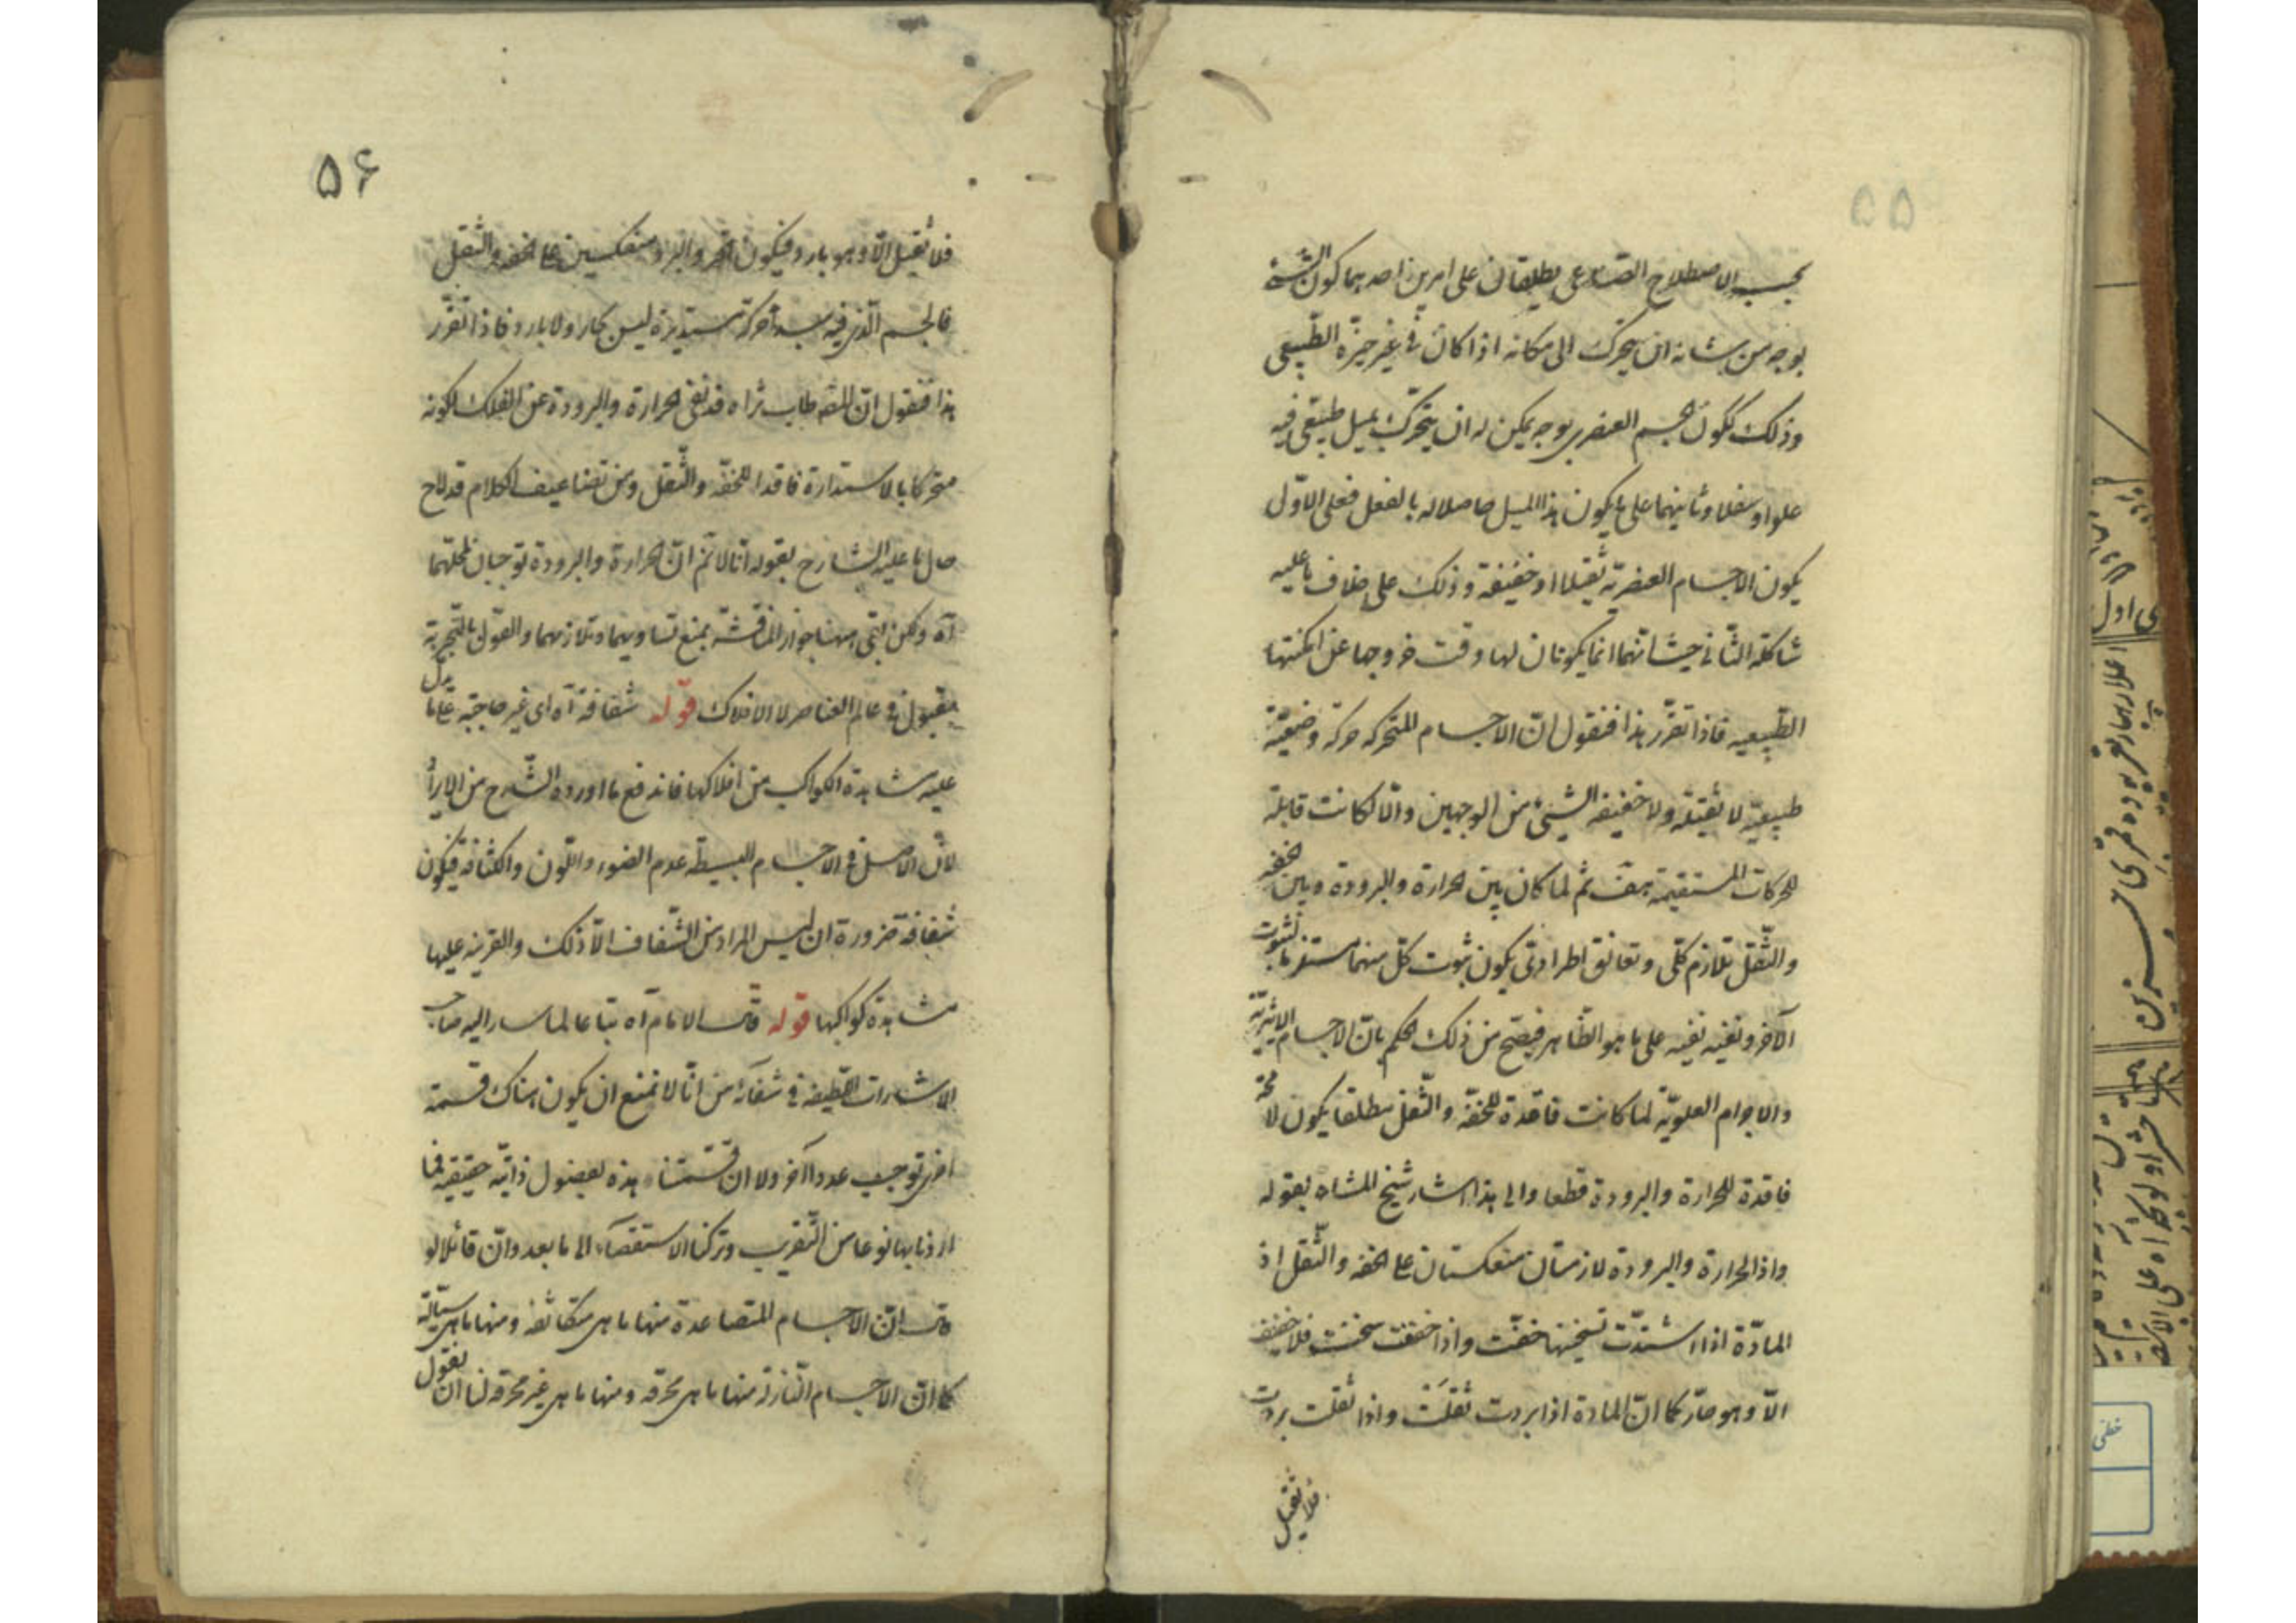 ۵۵
بحسب الاصطلاح الصناعی یطلقان علی امرین احدهما کون الشیء
بوجه من شانه ان یتحرک الی مکانه اذا کان فی غیر حیزه الطبیعی
وذلک ککون الجسم العنصری بوجه یمکن له ان یتحرک بمیل طبیعی فیه
علوا وسفلا وثانیهما علی ما یکون هذا المیل حاصلا له بالفعل فعلی الاول
یکون الاجسام العنصریة ثقیلا او خفیفة وذلک علی خلاف ما علیه
شاکلة الثانی حیث انهما انما یکونان لها وقت خروجها عن امکنتها
الطبیعیه فاذا تقرر هذا فنقول ان الاجسام المتحرکه حرکة وضعیة
طبیعیة لا ثقیلة ولا خفیفه لشیئ من الوجهین والا لکانت قابلة
للحرکات المستقیمة هف ثم لما کان بین الحرارة والبرودة وبین الخفه
والثقل تلازم کلی وتعانق اطرادی یکون ثبوت کل منهما مستلزما لثبوت
الآخر ونفیه نفیه علی ما هو الظاهر فیصح من ذلک الحکم بان الاجسام الاثیریة
والاجرام العلویة لما کانت فاقدة للخفة والثقل مطلقا یکون لا محة
فاقدة للحرارة والبرودة قطعا والی هذا اشار شیخ المشاء بقوله
واذ الحرارة والبرودة لازمتان منعکستان علی الخفه والثقل اذ
المادة اذا اشتدت تسخینها خفت واذا خففت سخنت فلا خفیف
الا وهو حار کما ان المادة اذا بردت ثقلت واذا ثقلت بردت
فلا ثقیل
۵۶
فلا ثقیل الا وهو بارد فیکون الحر والبرد منعکسین علی الخفه والثقل
فالجسم الذی فیه مبدأ حرکة مستدیرة لیس بحار ولا بارد فاذا تقرر
هذا فنقول ان المصه طاب ثراه قد نفی الحرارة والبرودة عن الفلک لکونه
متحرکا بالاستدارة فاقدا للخفة والثقل ومن تضاعیف الکلام قد لاح
حال ما علیه الشارح بقوله انا لا نم ان الحرارة والبرودة توجبان لمحلهما
آه ولکن بقی ههنا جواز المناقشة بمنع تساویهما وتلازمهما والقول بالتجربة
مقبول فی عالم العناصر لا الافلاک قوله شفافة آه ای غیر حاجبة علی ما یدل
علیه مشاهدة الکواکب من افلاکها فاندفع ما اورده الشارح من الایراد
لان الاصل فی الاجسام البسیطة عدم الضوء واللون والکثافة فیکون
شفافة ضرورة ان لیس المراد من الشفاف الا ذلک والقرینه علیها
مشاهدة کواکبها قوله قال الامام آه تبعا لما سار الیه صاحب
الاشارات اللطیفه فی شفائه من انا لا نمنع ان یکون هناک قسمة
اخری توجب عددا آخر ولا ان قسمتنا هذه بفصول ذاتیة حقیقیه فما
اردنا بها نوعا من التقریب وترکنا الاستقصاء الی ما بعد وان قائلا لو
قال ان الاجسام المتصاعدة منها ما هی متکاثفه ومنها ما هی سیالة
کما ان الاجسام النازلة منها ما هی محرقه ومنها ما هی غیر محرقه لنا ان نقول